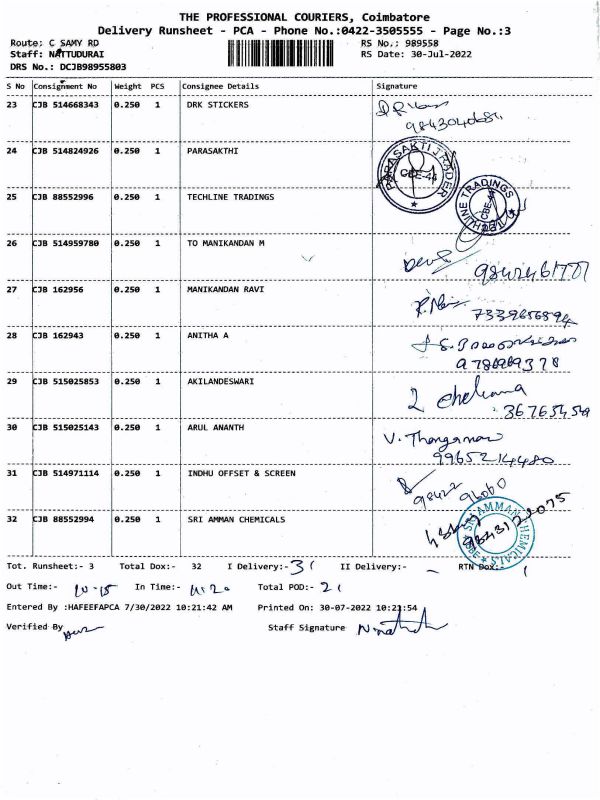 THE PROFESSIONAL COURIERS, Coimbatore
Delivery Runsheet - PCA - Phone No.:0422-3505555 - Page No.:3
Route: C SAMY RD RS No.: 989558
Staff: NATTUDURAI RS Date: 30-Jul-2022
DRS No.: DCJB98955803
S No Consignment No Weight PCS Consignee Details Signature
23 CJB 514668343 0.250 1 DRK STICKERS
24 CJB 514824926 0.250 1 PARASAKTHI
PARASAKTI TRADER
CBE-44
25 CJB 88552996 0.250 1 TECHLINE TRADINGS
TECHLINE TRADINGS
26 CJB 514959780 0.250 1 TO MANIKANDAN M
27 CJB 162956 0.250 1 MANIKANDAN RAVI
7339656894
28 CJB 162943 0.250 1 ANITHA A
29 CJB 515025853 0.250 1 AKILANDESWARI
30 CJB 515025143 0.250 1 ARUL ANANTH
9965214480
31 CJB 514971114 0.250 1 INDHU OFFSET & SCREEN
98422 96060
32 CJB 88552994 0.250 1 SRI AMMAN CHEMICALS
SRI AMMAN CHEMICALS
Tot. Runsheet:- 3 Total Dox:- 32 I Delivery:- 31 II Delivery:- - RTN Dox:- 1
Out Time:- 10-15 In Time:- Total POD:-
Entered By :HAFEEFAPCA 7/30/2022 10:21:42 AM Printed On: 30-07-2022 10:21:54
Verified By Staff Signature